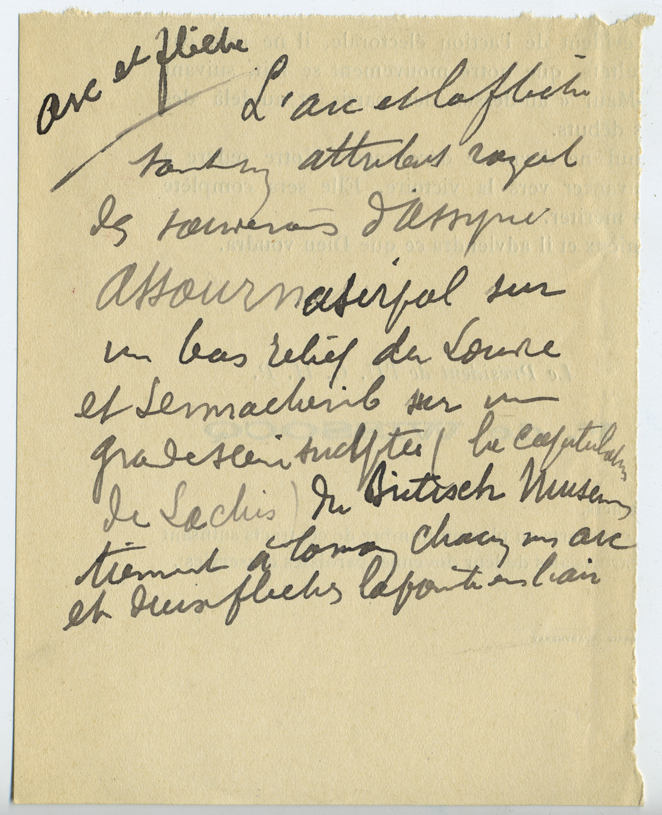 arc et flèche
L'arc et la flèche
sont un attribut royal
des souverains d'Assyrie
Assournasirpal sur
un bas relief du Louvre
et Sennacherib sur une
grande scène sculptée (la capitulation
de Lachis) du Britisch Museum
tiennent à la main chacun un arc
et deux flèches la pointe en l'air